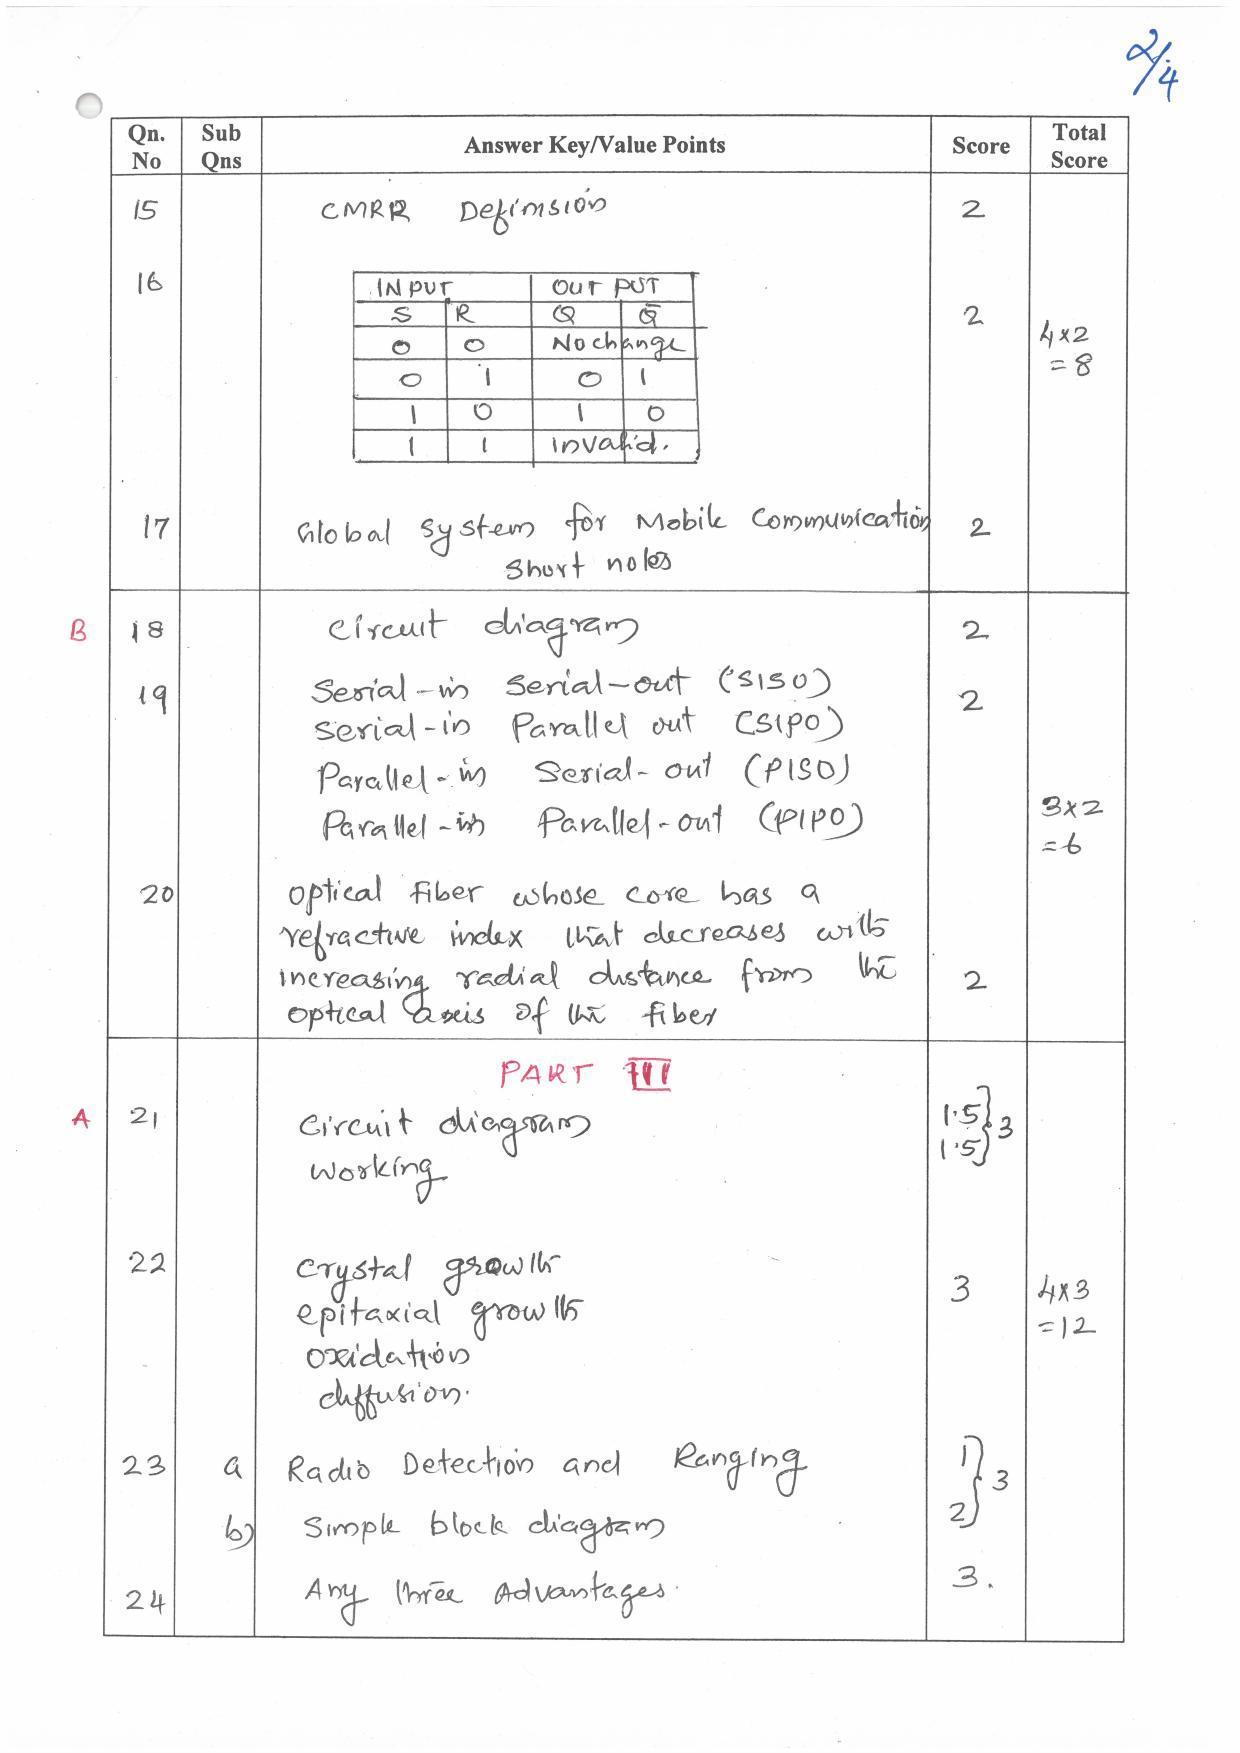 2/4
Qn. No Sub Qns Answer Key/Value Points Score Total Score
15 CMRR Definision 2
16 INPUT OUT PUT
S R Q Q̅
2
0 0 No change
4×2
= 8
0 1 0 1
1 0 1 0
1 1 invalid.
17 Global system for Mobile Communication 2
Short notes
B 18 Circuit diagram 2
19 Serial-in Serial-out (SISO) 2
Serial-in Parallel out (SIPO)
Parallel-in Serial-out (PISO)
Parallel-in Parallel-out (PIPO)
3×2
=6
20 optical fiber whose core has a
refractive index that decreases with
increasing radial distance from the 2
optical axis of the fiber
PART III
A 21 Circuit diagram 1.5
working 1.5
3
22 Crystal growth
epitaxial growth 3
oxidation
diffusion.
4×3
=12
23 a Radio Detection and Ranging 1
b) Simple block diagram 2
3
24 Any three Advantages. 3.